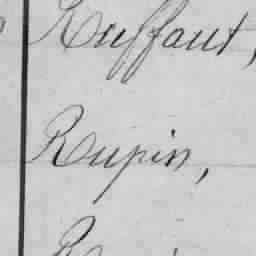 Ruffaut,
Rupin,